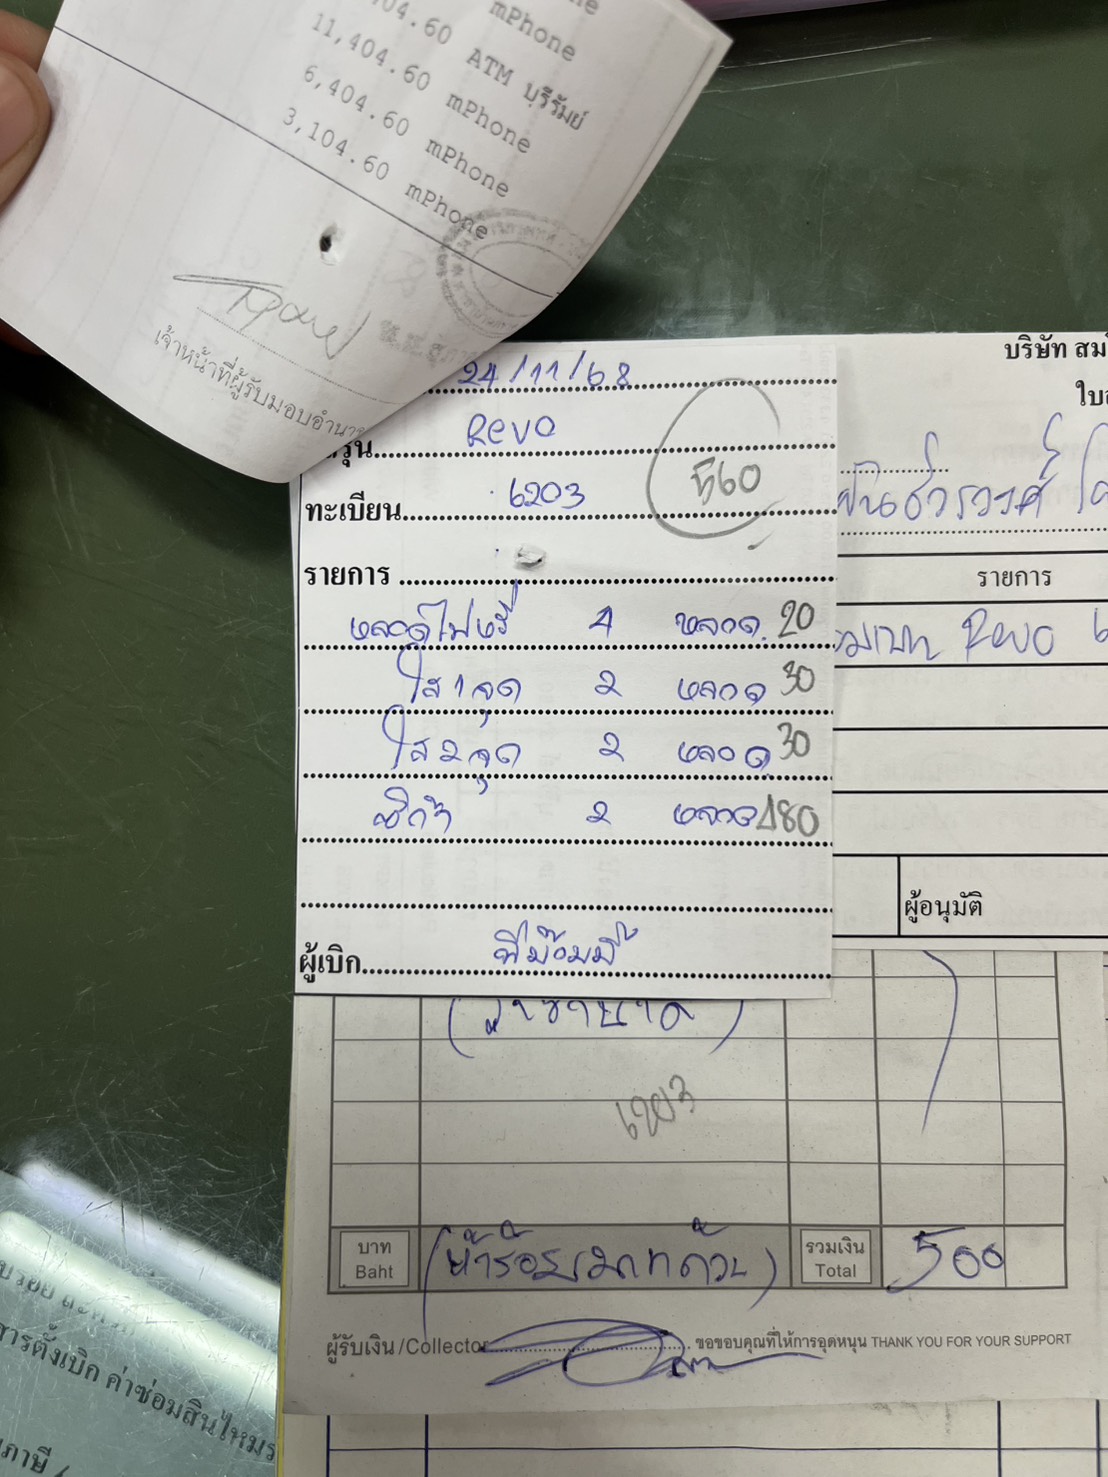 mPhone
04.60 ATM บุรีรัมย์
11,404.60 mPhone
6,404.60 mPhone
3,104.60 mPhone
เจ้าหน้าที่ผู้รับมอบอำนา
24/11/68
รุ่น Revo
ทะเบียน 6203
560
รายการ
หลอดไฟหรี่ 4 หลอด 20
ไส้ 1 จุด 2 หลอด 30
ไส้ 2 จุด 2 หลอด 30
2 หลอด 480
ผู้เบิก พี่ม๊อบบี้
บริษัท สม
ใบ
รายการ
Revo 6
ผู้อนุมัติ
6203
บาท
Baht
(ห้าร้อยบาทถ้วน)
รวมเงิน
Total
500
ผู้รับเงิน/Collector
ขอขอบคุณที่ให้การอุดหนุน THANK YOU FOR YOUR SUPPORT
ารตั้งเบิก ค่าซ่อมสินไหมร
ภาษี /